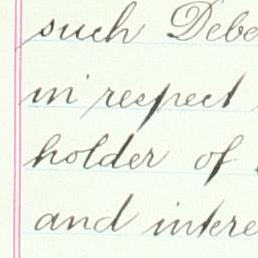 such Debe
in respect
holder of
and intere